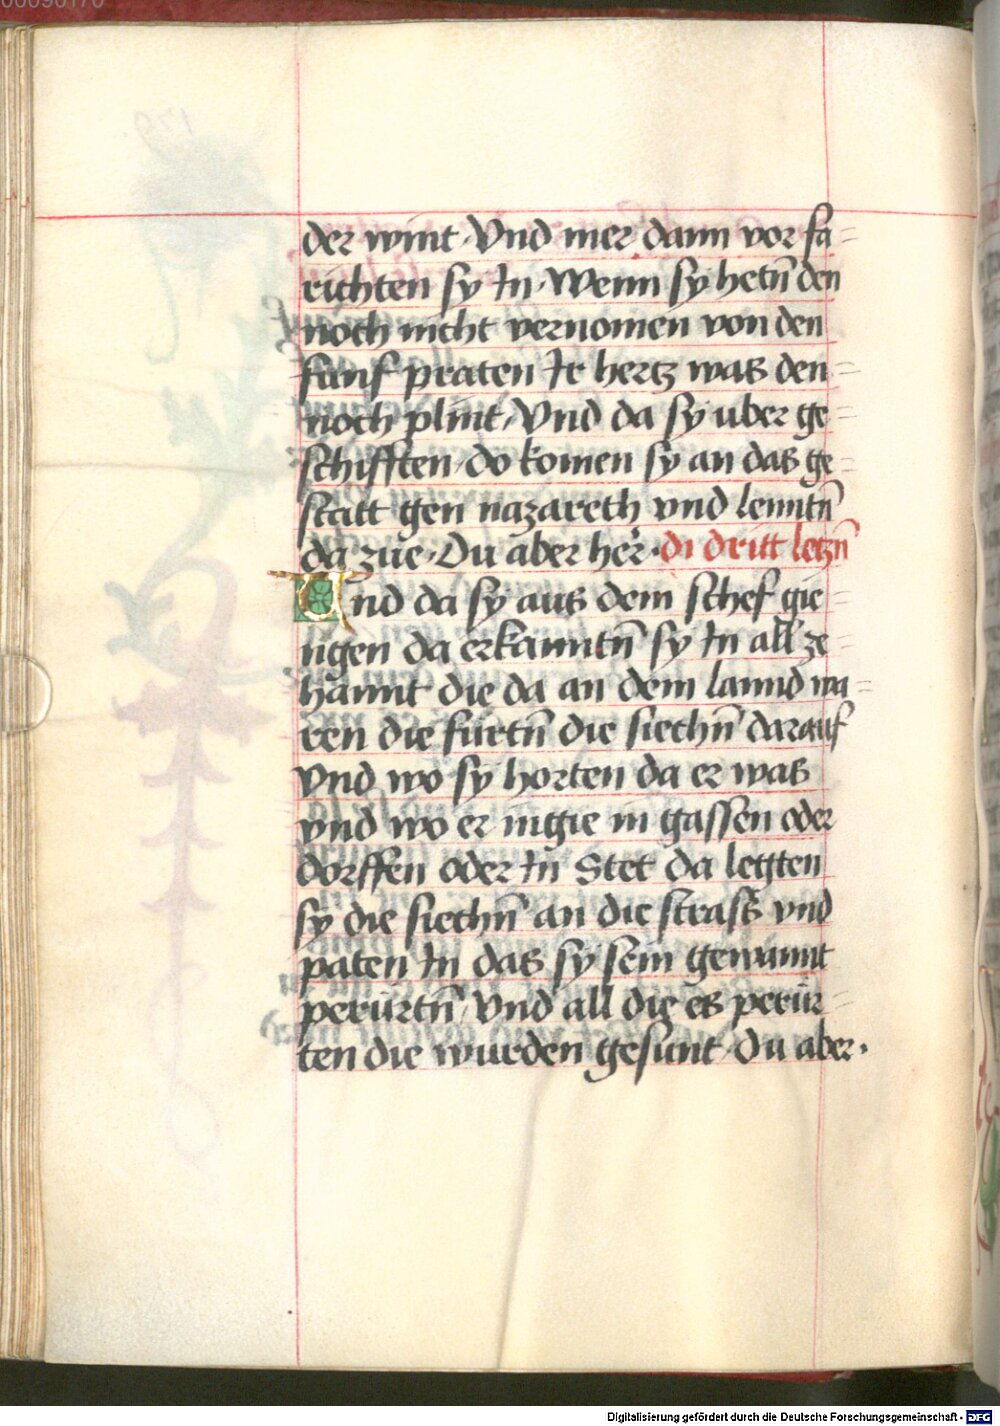 der wint · Vnd mer dann vor fa=
richten sy In · Wenn sy hetn̄ den
noch nicht vernomen von den
funf praten Ir hertz was den=
noch plint / Vnd da sy uber ge=
schifften / do komen sy an das ge=
statt gen nazareth vnd lenntn̄
da zue · Du aber her · di dritt letzn̄
Vnd da sy aus dem schef gie=
ngen da erkanntn̄ sy In all ze=
hannt die da an dem lannd wa=
ren die fürtn̄ die siechn̄ darauf
Vnd wo sy horten da er was
vnd wo er ingie in gassen oder
dorffen oder In Stet da legten
sy die siechn̄ an die strass vnd
paten In das sy sein gewannt
perürtn̄ / Vnd all die es perür=
ten die wurden gesunt · Du aber ·
Digitalisierung gefördert durch die Deutsche Forschungsgemeinschaft - DFG